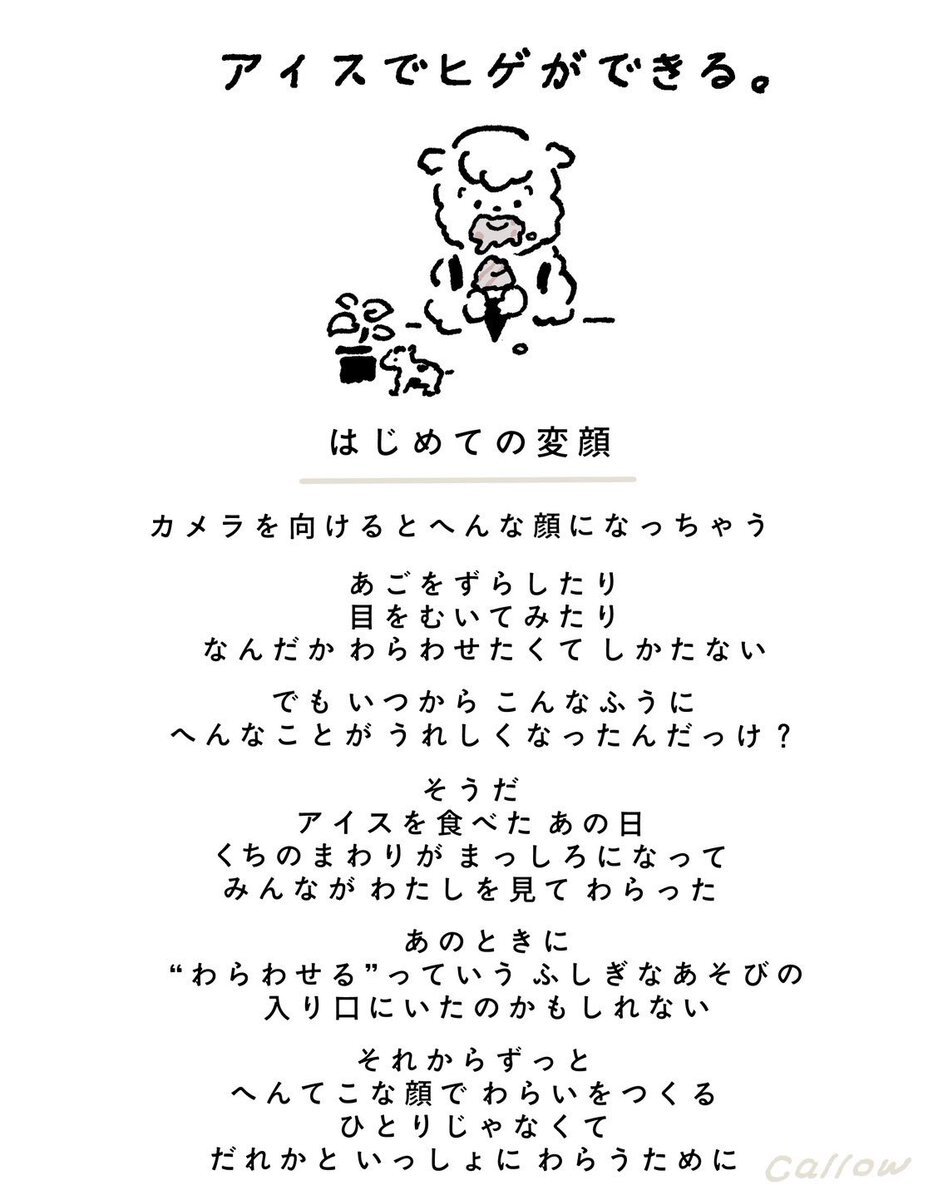 アイスでヒゲができる。
はじめての変顔
カメラを向けるとへんな顔になっちゃう
あごをずらしたり
目をむいてみたり
なんだか わらわせたくて しかたない
でも いつから こんなふうに
へんなことが うれしくなったんだっけ？
そうだ
アイスを食べた あの日
くちのまわりが まっしろになって
みんなが わたしを見て わらった
あのときに
“わらわせる”っていう ふしぎなあそびの
入り口にいたのかもしれない
それからずっと
へんてこな顔で わらいをつくる
ひとりじゃなくて
だれかと いっしょに わらうために
Callow